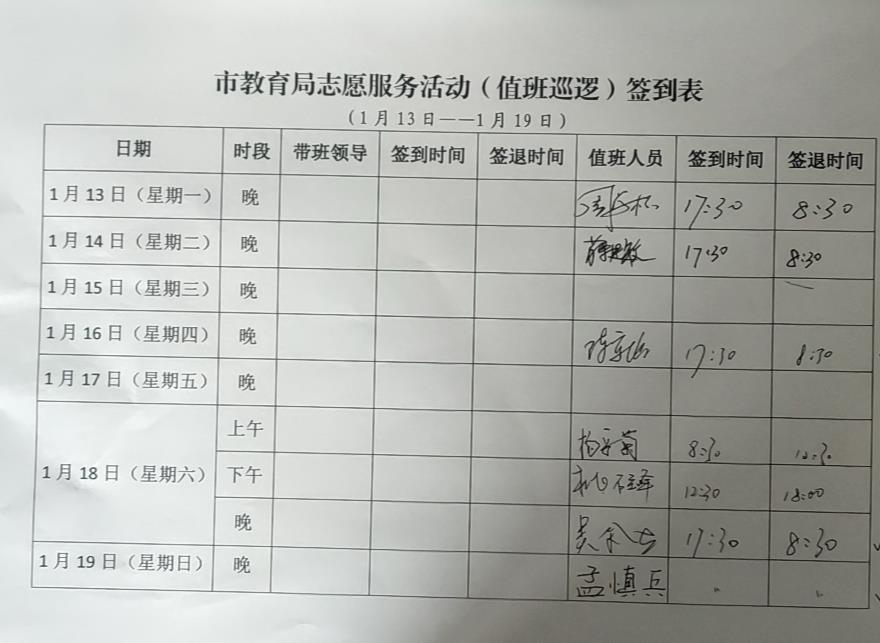 市教育局志愿服务活动（值班巡逻）签到表
（1月13日——1月19日）
日期 时段 带班领导 签到时间 签退时间 值班人员 签到时间 签退时间
1月13日（星期一） 晚 17:30 8:30
1月14日（星期二） 晚 17:30 8:30
1月15日（星期三） 晚
1月16日（星期四） 晚 17:30 8:30
1月17日（星期五） 晚
1月18日（星期六） 上午 8:30 12:30
下午 12:30 18:00
晚 17:30 8:30
1月19日（星期日） 晚 孟慎兵 〃 〃